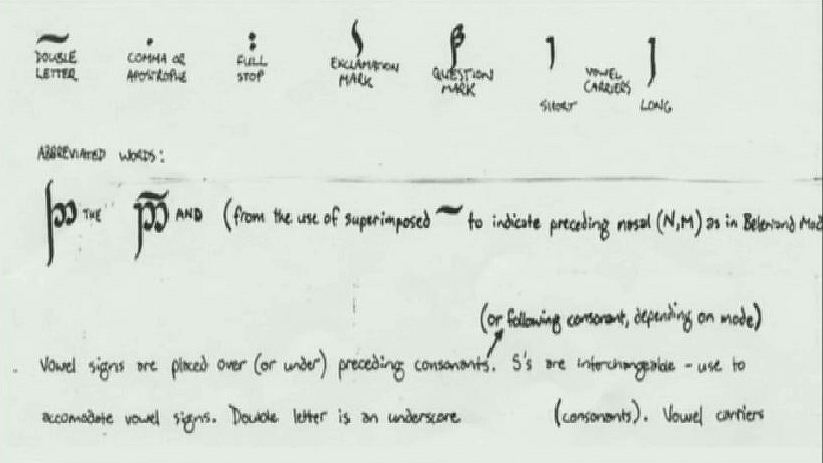 DOUBLE LETTER
COMMA OR APOSTROPHE
FULL STOP
EXCLAMATION MARK
QUESTION MARK
VOWEL CARRIERS
SHORT
LONG
ABBREVIATED WORDS:
THE AND (from the use of superimposed ~ to indicate preceding nasal (N,M) as in Beleriand Mod
(or following consonant, depending on mode)
Vowel signs are placed over (or under) preceding consonants. S's are interchangeable - use to
accomodate vowel signs. Double letter is an underscore (consonants). Vowel carriers